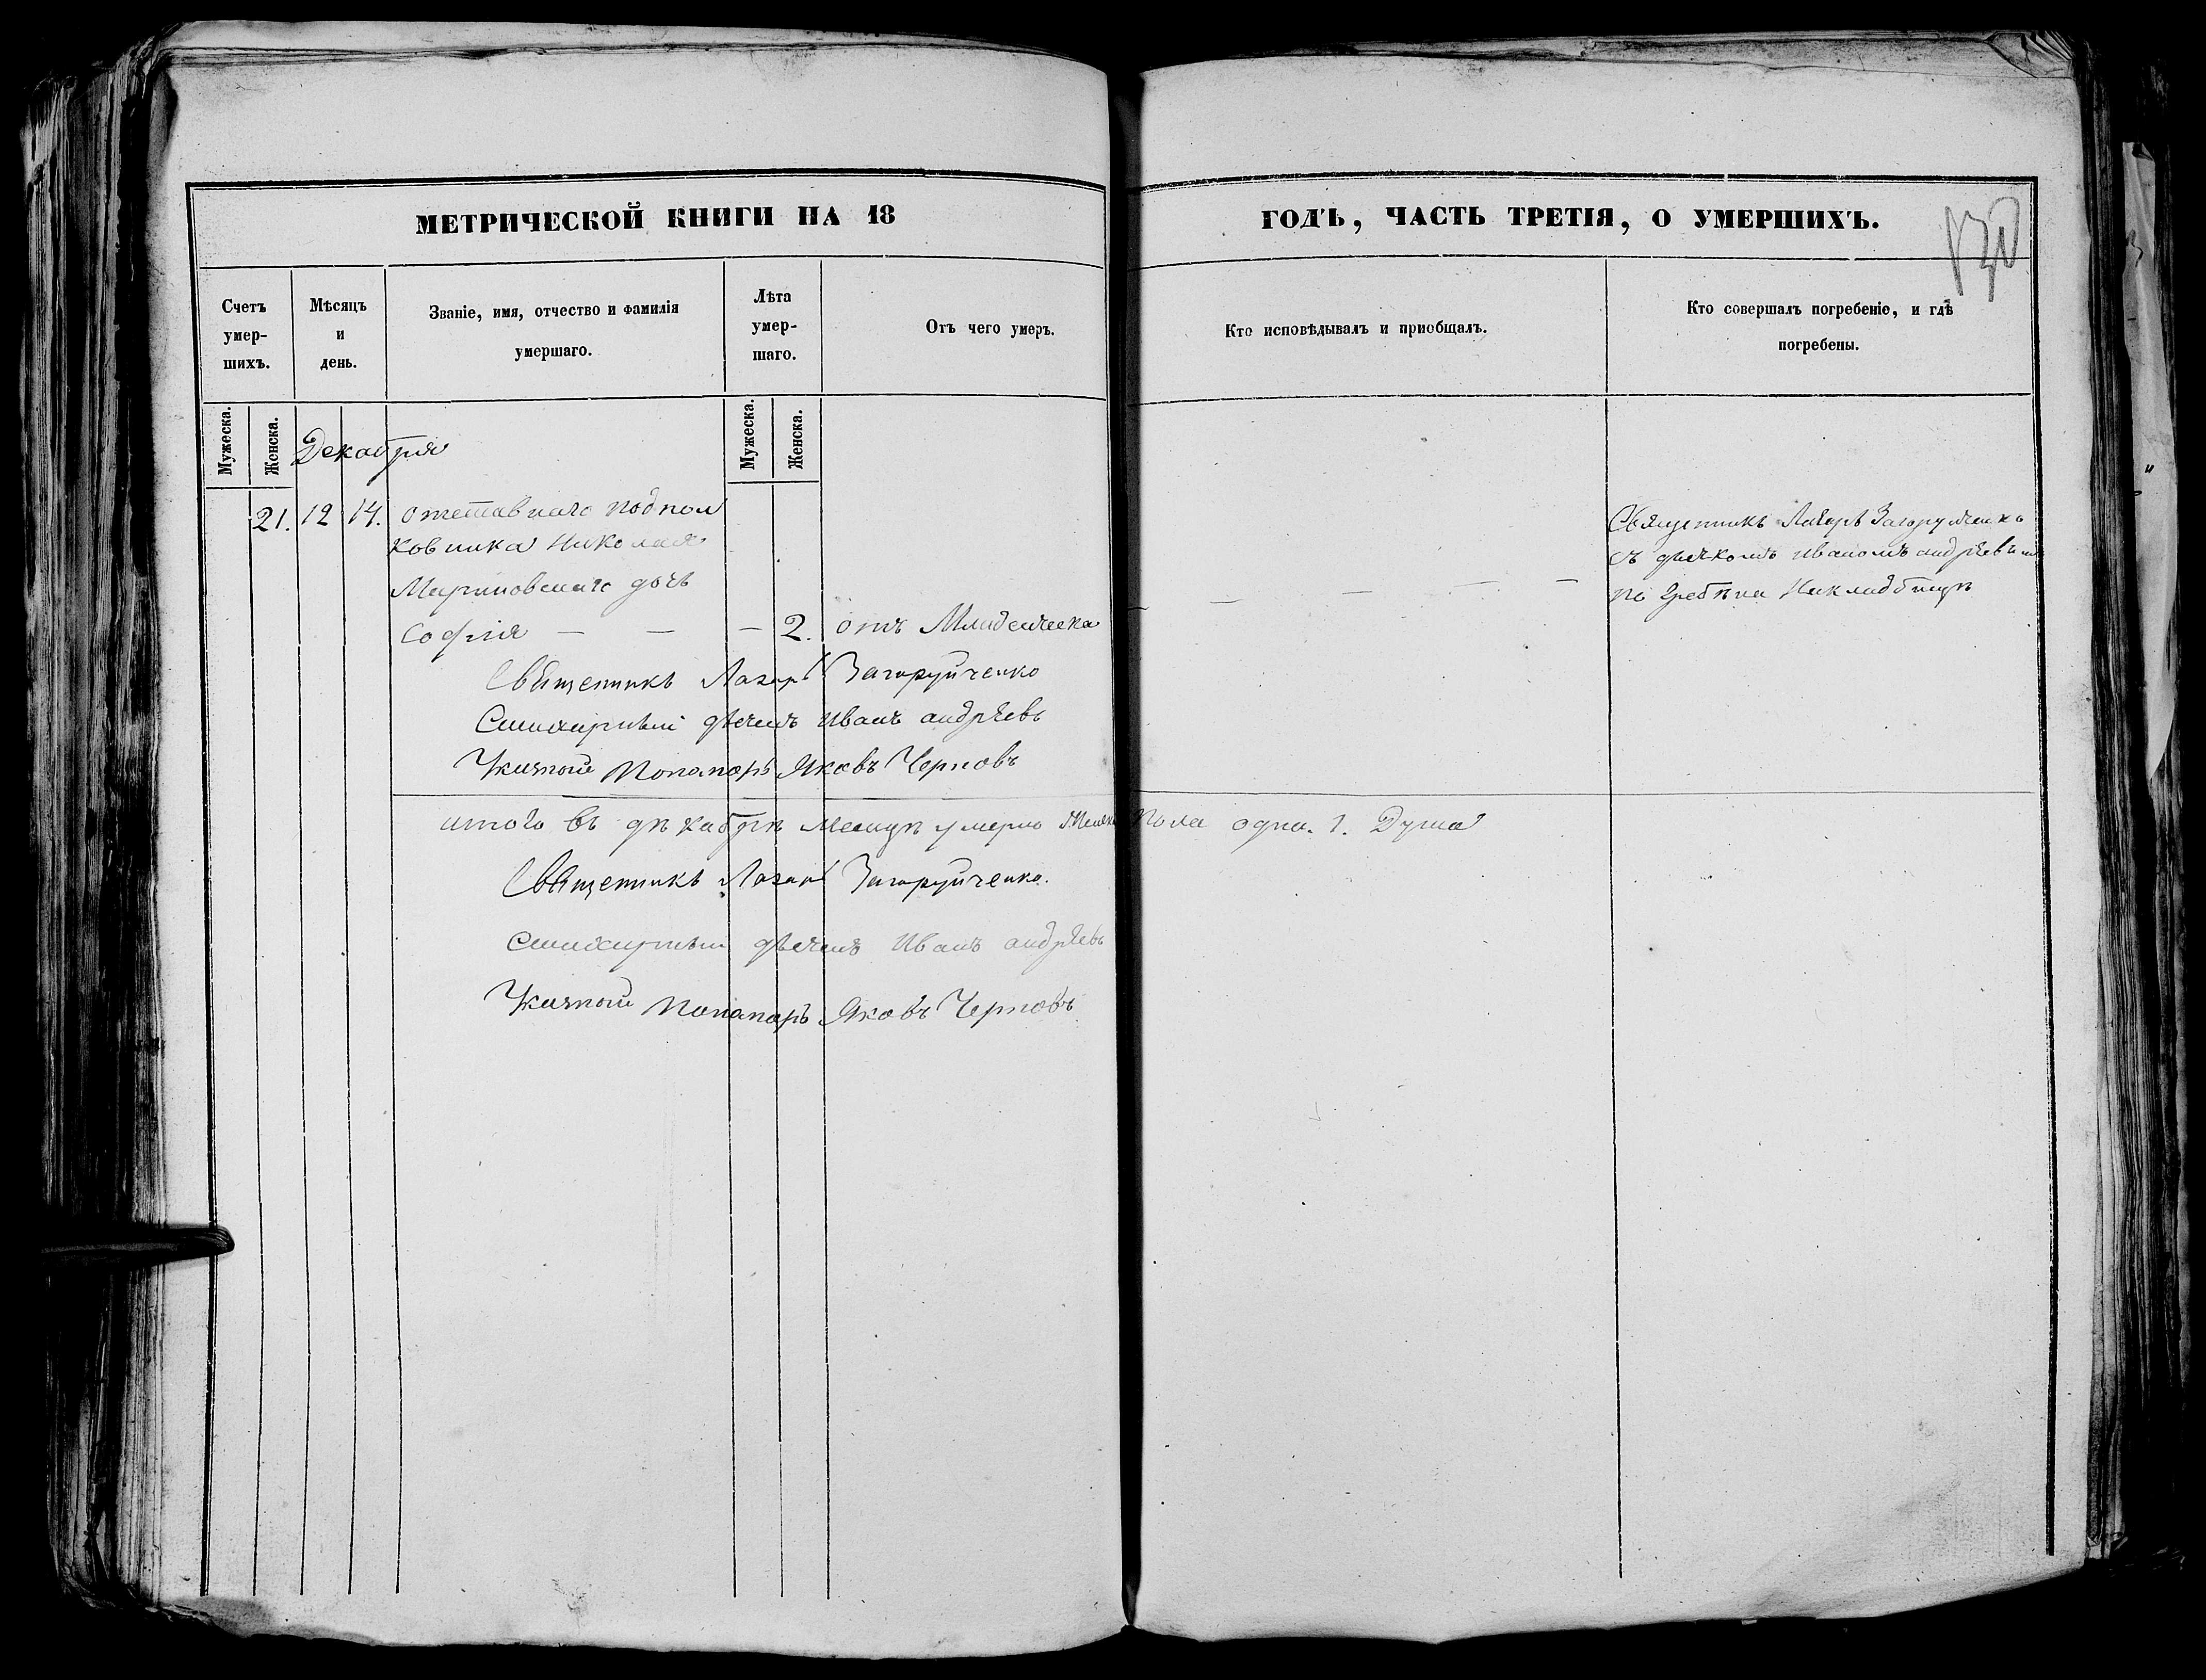 МЕТРИЧЕСКОЙ КНИГИ НА 18 ГОДЪ, ЧАСТЬ ТРЕТІЯ, О УМЕРШИХЪ.
Счетъ умер-шихъ.
Мѣсяцъ и день.
Званіе, имя, отчество и фамилія умершаго.
Лѣта умер-шаго.
Отъ чего умеръ.
Кто исповѣдывалъ и пріобщалъ.
Кто совершалъ погребеніе, и гдѣ погребены.
Мужеска.
Женска.
Мужеска.
Женска.
Декабря
21. 12 14. отставнаго подпол
ковника Николая
дочь
Софія — — — 2. отъ Младенческа
Священникъ Лазарь
съ дьячкомъ Иваномъ андрѣевым
на кладбищѣ
Священникъ Лазарь Загоруйченко
Стихарный дьячекъ Иванъ андрѣевъ
Указной Понамарь Яковъ Черновъ
итого въ дѣкабрѣ Месяцѣ умерло Женска Пола одна. 1. Душа
Священникъ Лазарь Загоруйченко.
Стихарный дьячекъ Иванъ андрѣевъ
Указной Понамарь Яковъ Черновъ